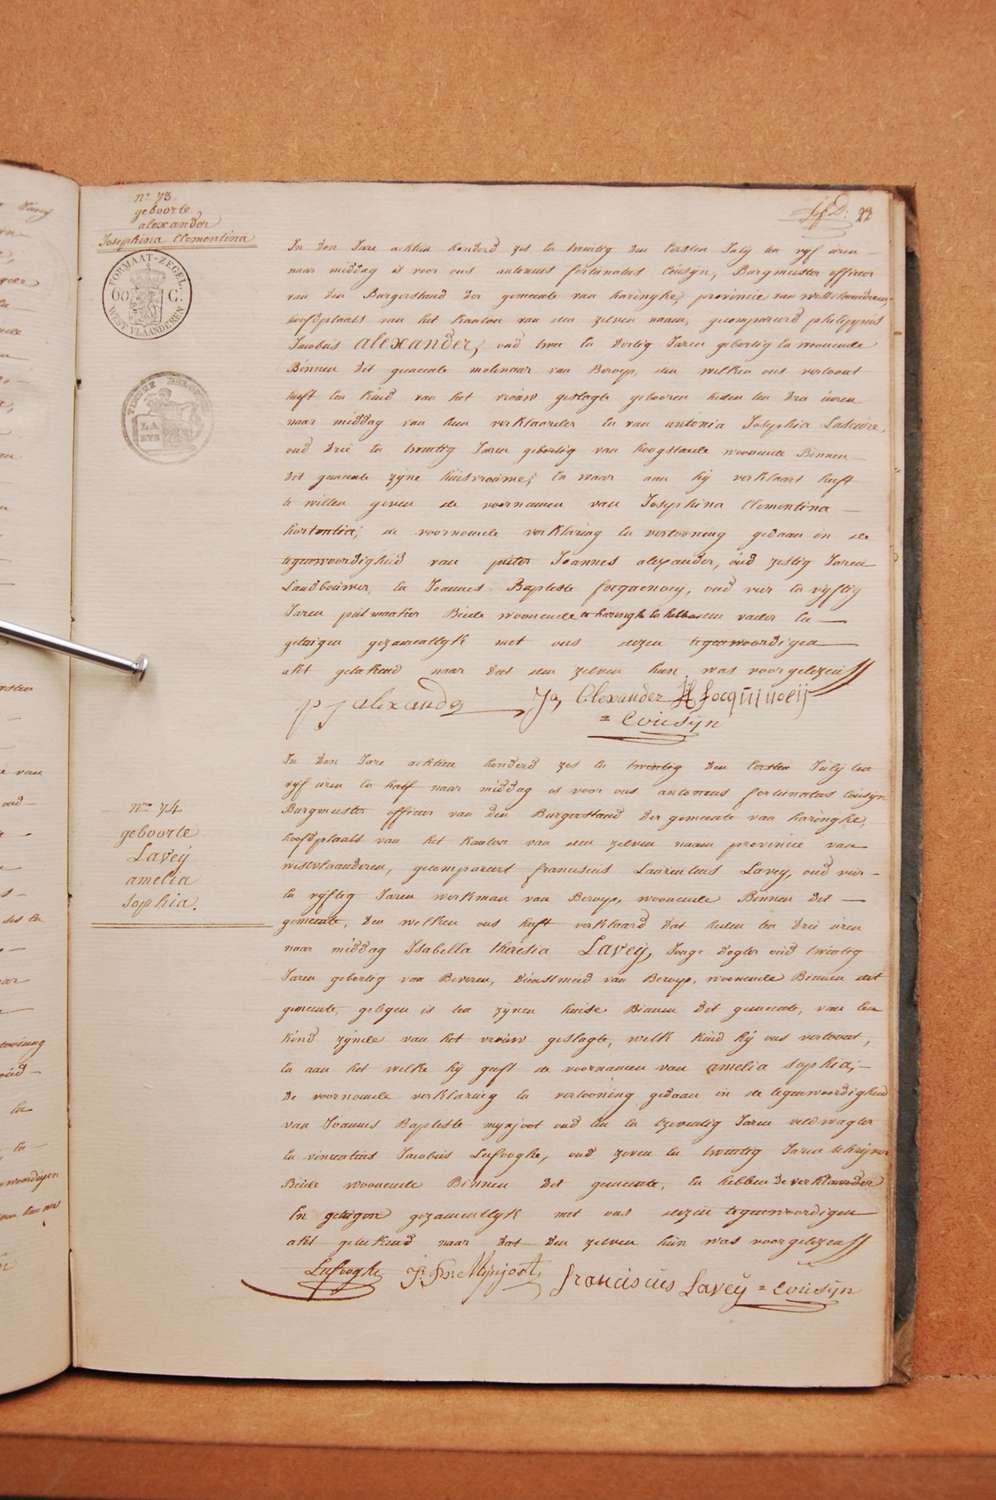 nr 73
geboorte
alexander
Josephina Clementina
FORMAAT-ZEGEL.
60 C.
WEST VLAANDEREN
22
In den Jare achtien honderd zes en twintig den Eersten July ten vyf uren
naar middag is voor ons antonius fortunatus Cousyn, Burgmeester officier
van den Burgerstand der gemeente van haringhe, provincie van westvlaanderen,
hoofdplaats van het kanton van den zelven naam, gecompareerd philippus
Jacobus alexander, oud twee en dertig Jaren geboortig en woonende
Binnen dit gemeente molenaar van Beroep, den welken ons vertoont
heeft een kind van het vrouw geslagte gebooren heden ten dry uren
naar middag van hem verklaarder en van antonia Josephia
oud drie en twintig Jaren geboortig van hoogstaede woonende Binnen
dit gemeente zyne huisvrouwe, en waar aan hy verklaart heeft
te willen geven de voornamen van Josephina Clementina
hortentia, de voornoemde verklaring en vertooning gedaan in de
tegenwoordigheid van pieter Joannes alexander, oud zestig Jaren
Landbouwer, en Joannes Baptiste Jocquenoey, oud vier en vyftig
Jaren puit maaker Beide woonende te haringhe en hebben den vader en
getuigen gezamentlyk met ons dezen tegenwoordigen
akt geteekend naar dat den zelven hun was voorgelezen
p j alexander Ja, Alexander Jocquenoeij
= Cousijn
In den Jare achtien honderd zes en twintig den Eersten July ten
vyf uren en half naar middag is voor ons antonius fortunatus Cousyn
Burgmeester officier van den Burgerstand der gemeente van haringhe,
hoofdplaats van het kanton van den zelven naam provincie van
westvlaanderen, gecompareert franciscus Laurentius Lavey, oud vier
en vyftig Jaren werkman van Beroep, woonende Binnen dit
gemeente, den welken ons heeft verklaard dat heden ten drie uren
naar middag Isabella theresia Lavey, Jonge dogter oud twintig
Jaren geboortig van Beveren, dienstmeid van Beroep, woonende Binnen dit
gemeente, gelegen is ten zynen huise Binnen dit gemeente, van een
kind zynde van het vrouw geslagte, welk kind hy ons vertoont,
en aan het welke hy geeft de voornamen van amelia sophia,
De voornoemde verklaring en vertooning gedaan in de tegenwoordigheid
van Joannes Baptiste mynjoot oud en tzeventig Jaren veldwagter
en vincentius Jacobus Lefooghe, oud zeven en twintig Jaren schrijver
Beide woonende Binnen dit gemeente, en hebben de verklaarder
En getuigen gezamentlyk met ons dezen tegenwoordigen
akt geteekend naar dat den zelven hun was voorgelezen
nr 74
geboorte
Laveÿ
amelia
Sophia.
Lefooghe J. Bte Mijnjoot, franciscus Laveÿ = Cousijn